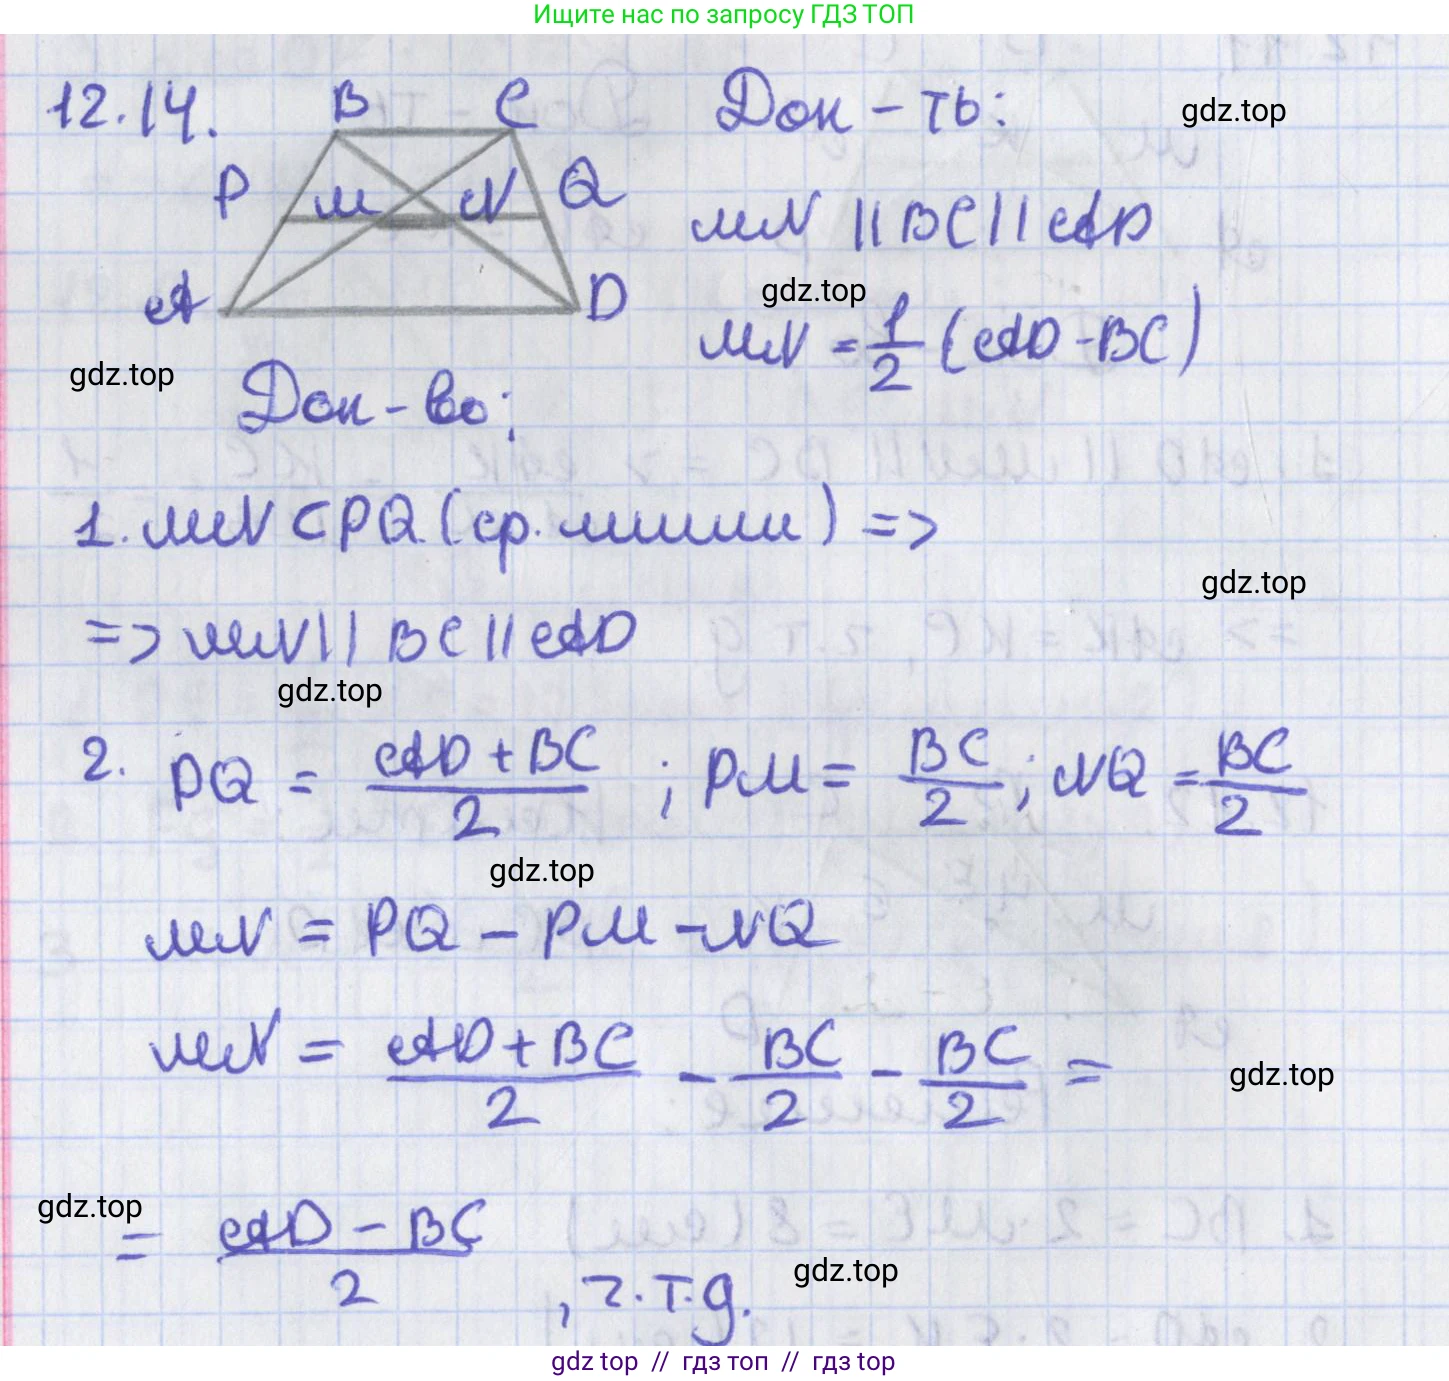 Ищите нас по запросу ГДЗ ТОП
12.14.
B C
P M N Q
A D
Док-ть:
gdz.top
MN || BC || AD
gdz.top
MN = 1/2 (AD - BC)
gdz.top
Док-во:
1. MN ⊂ PQ (ср. линии) =>
gdz.top
=> MN || BC || AD
gdz.top
2. PQ = (AD + BC)/2 ; PM = BC/2 ; NQ = BC/2
gdz.top
MN = PQ - PM - NQ
MN = (AD + BC)/2 - BC/2 - BC/2 =
gdz.top
gdz.top
= (AD - BC)/2 , ч.т.д.
gdz.top
gdz top // гдз топ // гдз top